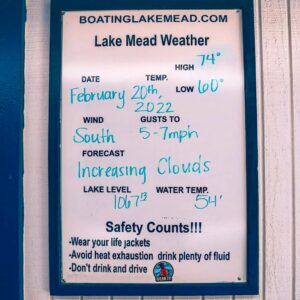 BOATINGLAKEMEAD.COM
Lake Mead Weather
HIGH 74°
DATE TEMP.
February 20th, 2022 LOW 60°
WIND GUSTS TO
South 5-7mph
FORECAST
Increasing Clouds
LAKE LEVEL WATER TEMP.
1067 54°
Safety Counts!!!
-Wear your life jackets
-Avoid heat exhaustion drink plenty of fluid
-Don't drink and drive